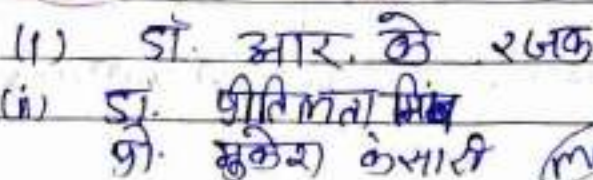 (i) डॉ. आर. के रजक
(ii) डॉ. प्रीतिलता मिंज
प्रो. मुकेश केसारी